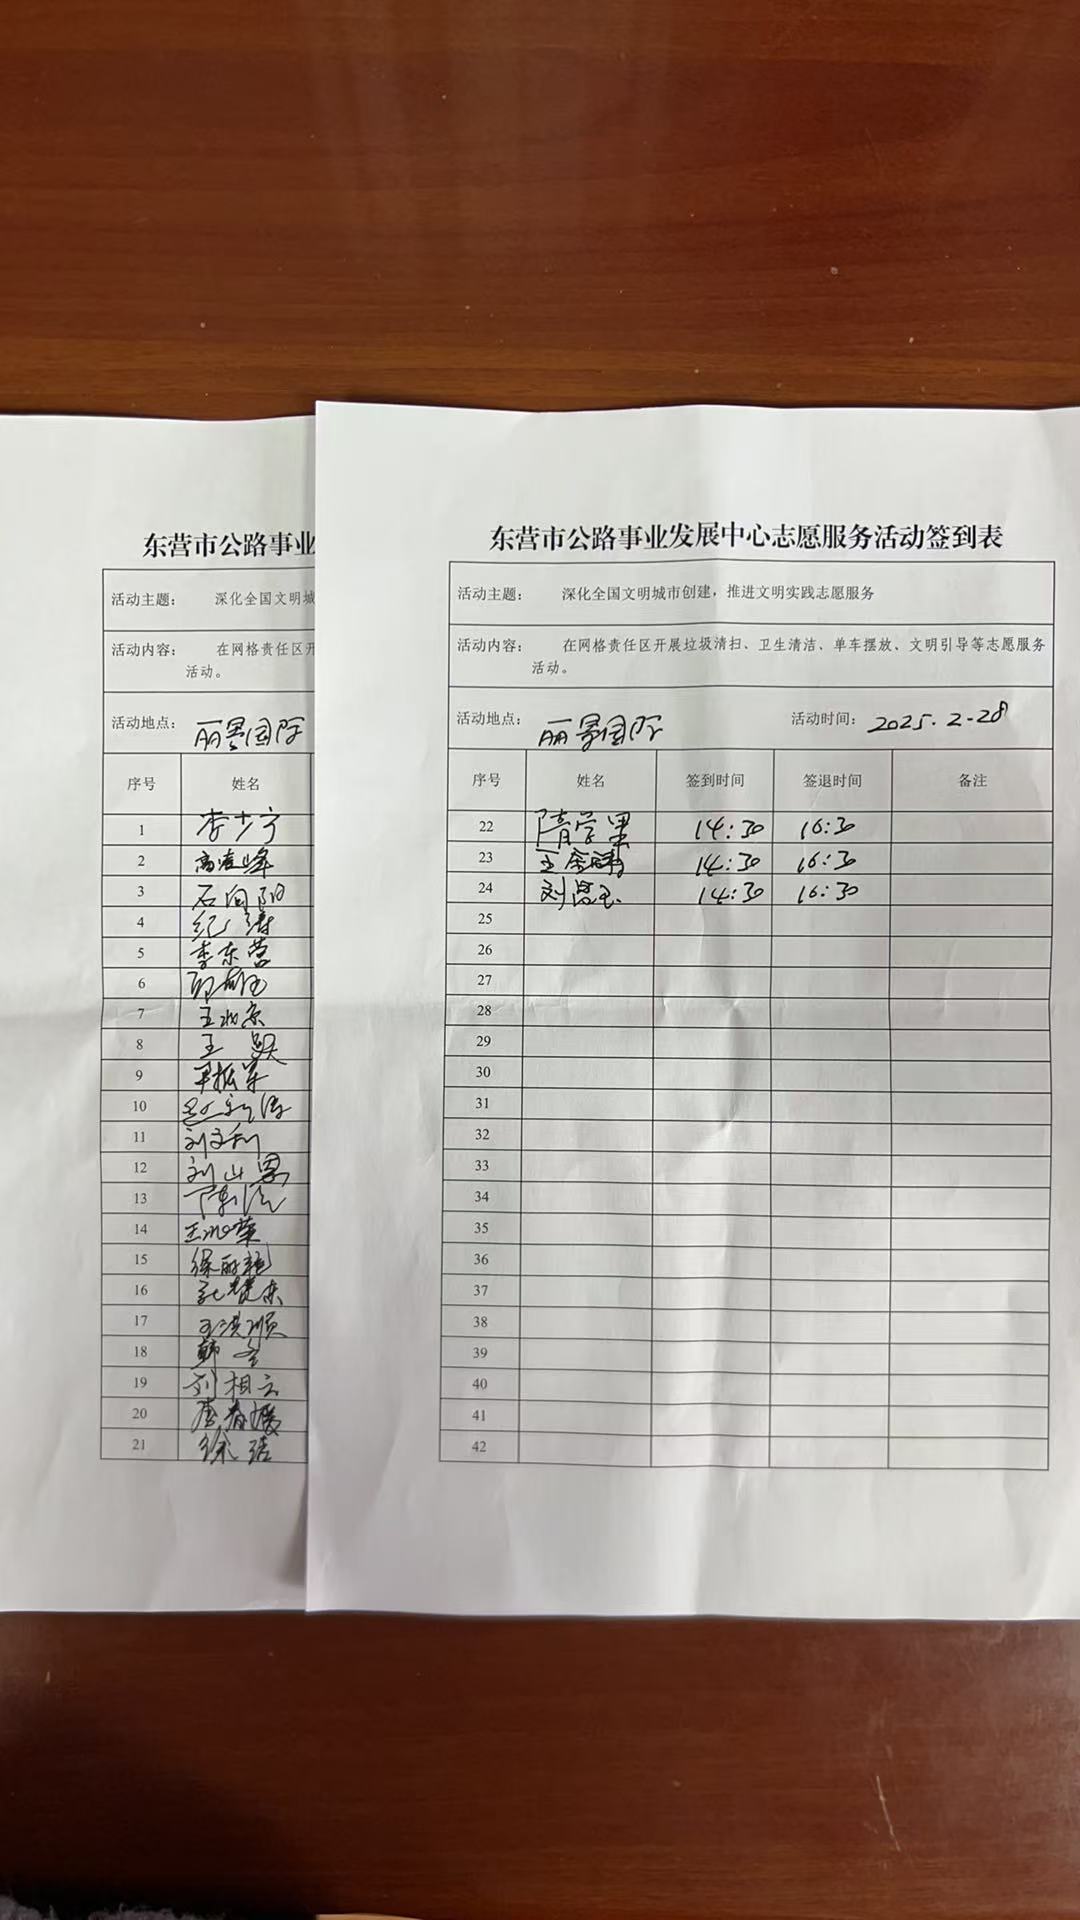 东营市公路事业
活动主题： 深化全国文明城
活动内容： 在网格责任区开
活动。
活动地点： 丽景国际
序号 姓名
1 李少宁
2 高凌峰
3 石向阳
4 纪涛
5 李东营
6
7 王兆京
8 王
9
10 赵新伟
11 刘文利
12 刘山果
13 陈
14 王兆荣
15 徐丽艳
16
17 王洪顺
18 韩
19 刘相云
20 唐春媛
21 徐洁
东营市公路事业发展中心志愿服务活动签到表
活动主题： 深化全国文明城市创建，推进文明实践志愿服务
活动内容： 在网格责任区开展垃圾清扫、卫生清洁、单车摆放、文明引导等志愿服务
活动。
活动地点： 丽景国际 活动时间： 2025.2-28
序号 姓名 签到时间 签退时间 备注
22 隋学果 14:30 16:30
23 王 14:30 16:30
24 刘 14:30 16:30
25
26
27
28
29
30
31
32
33
34
35
36
37
38
39
40
41
42